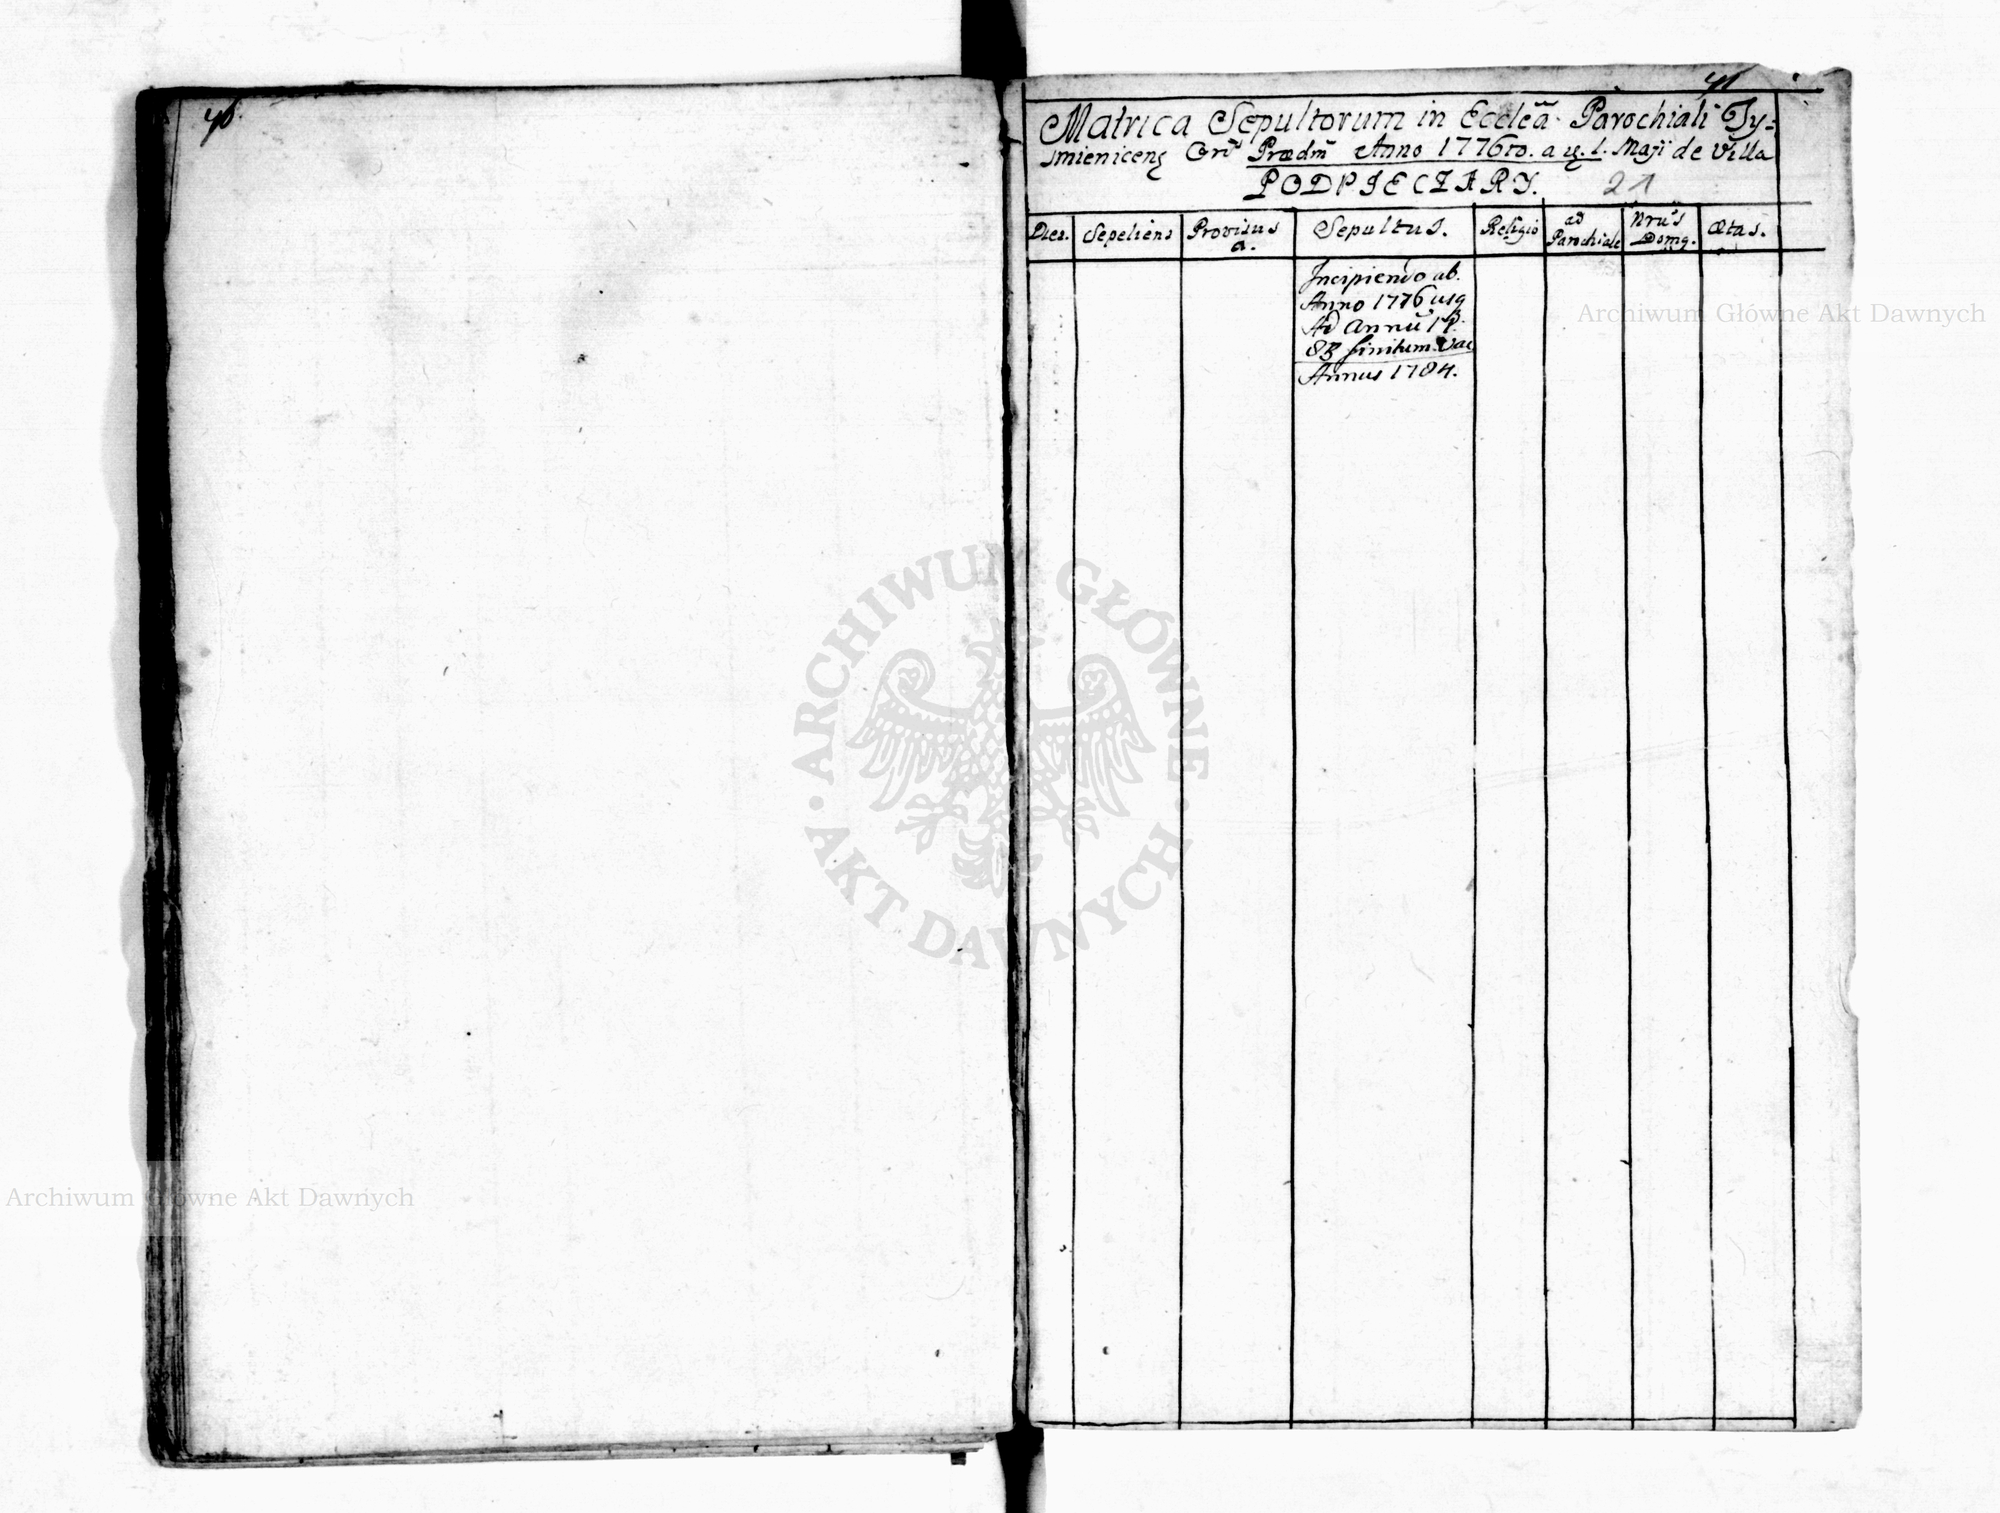 40.
41
Matrica Sepultorum in Ecclēa Parochiali Ty=
smienicens Grī Prædm̄ Anno 1776to. a 1. Maji de Villa
PODPIECZARY. 21
Dies.
Sepeliens
Provisus
a.
Sepultus.
Religio
ad
Parochiale
Nrus
Domq.
Ætas.
Incipiendo ab.
Anno 1776 usq
Ad Annū 17
83 finitum. Vac
Annus 1784.
Archiwum Główne Akt Dawnych
ARCHIWUM GŁÓWNE
AKT DAWNYCH
Archiwum Główne Akt Dawnych